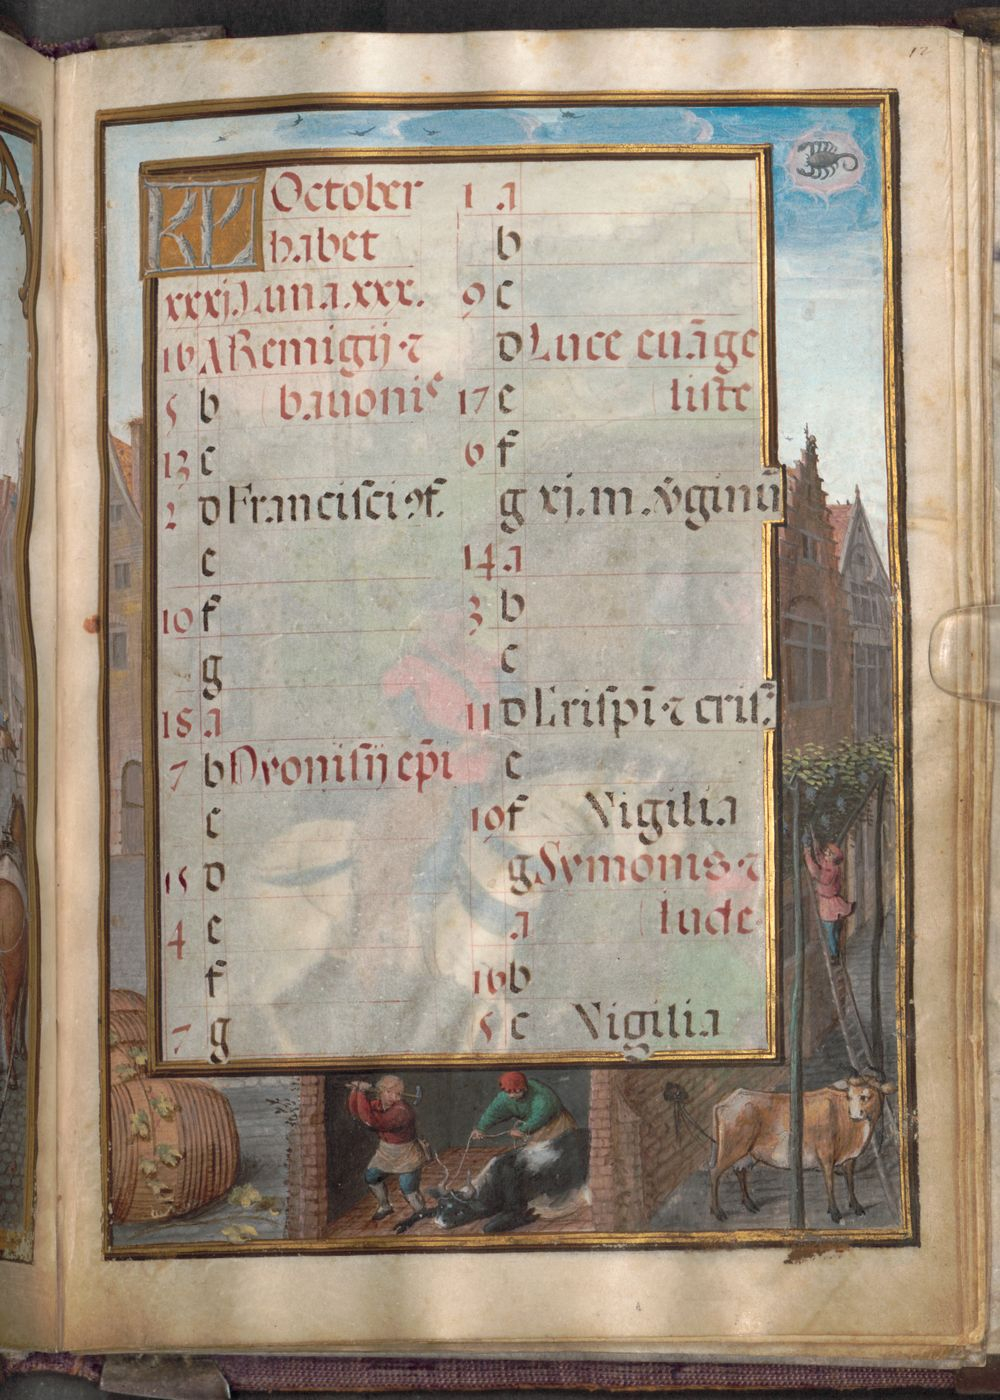 12
KL October
habet
xxxj. Luna. xxx.
16 A Remigij · ⁊
5 b bauonis
13 c
2 d Francisci ꝯf.
e
10 f
g
18 a
7 b Dyonisij ep̄i
c
15 d
4 e
f
7 g
1 a
b
9 c
d Luce euāge
17 e liste
6 f
g xj. m. v̄ginū
14 a
3 b
c
11 d Crispī · ⁊ cris.
e
19 f Vigilia
g Symonis · ⁊
a Iude
16 b
5 c Vigilia